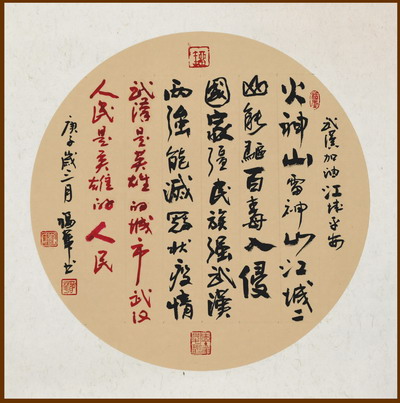 武漢加油江城平安
火神山雷神山江城二
山能驅百毒入侵
國家彊民族强武漢
两强能滅冠状疫情
武漢是英雄的城市武汉
人民是英雄的人民
庚子歲二月